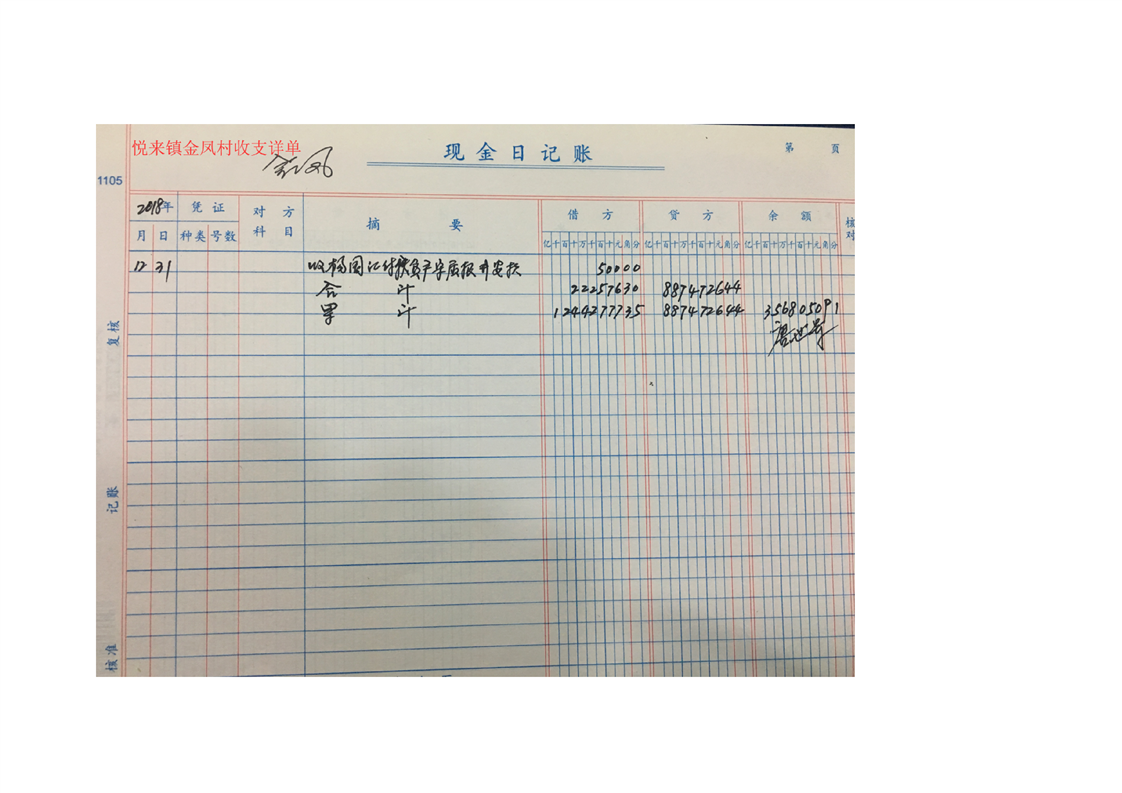 悦来镇金凤村收支详单
金凤
现金日记账
第 页
1105
2018年 凭证 对方 摘要 借方 贷方 余额 核
月 日 种类 号数 科目 亿千百十万千百十元角分 亿千百十万千百十元角分 亿千百十万千百十元角分 对
12 31 收杨国 50000
合 计 22257630 887472644
累 计 1244277735 887472644 356805091
复核
记账
核准